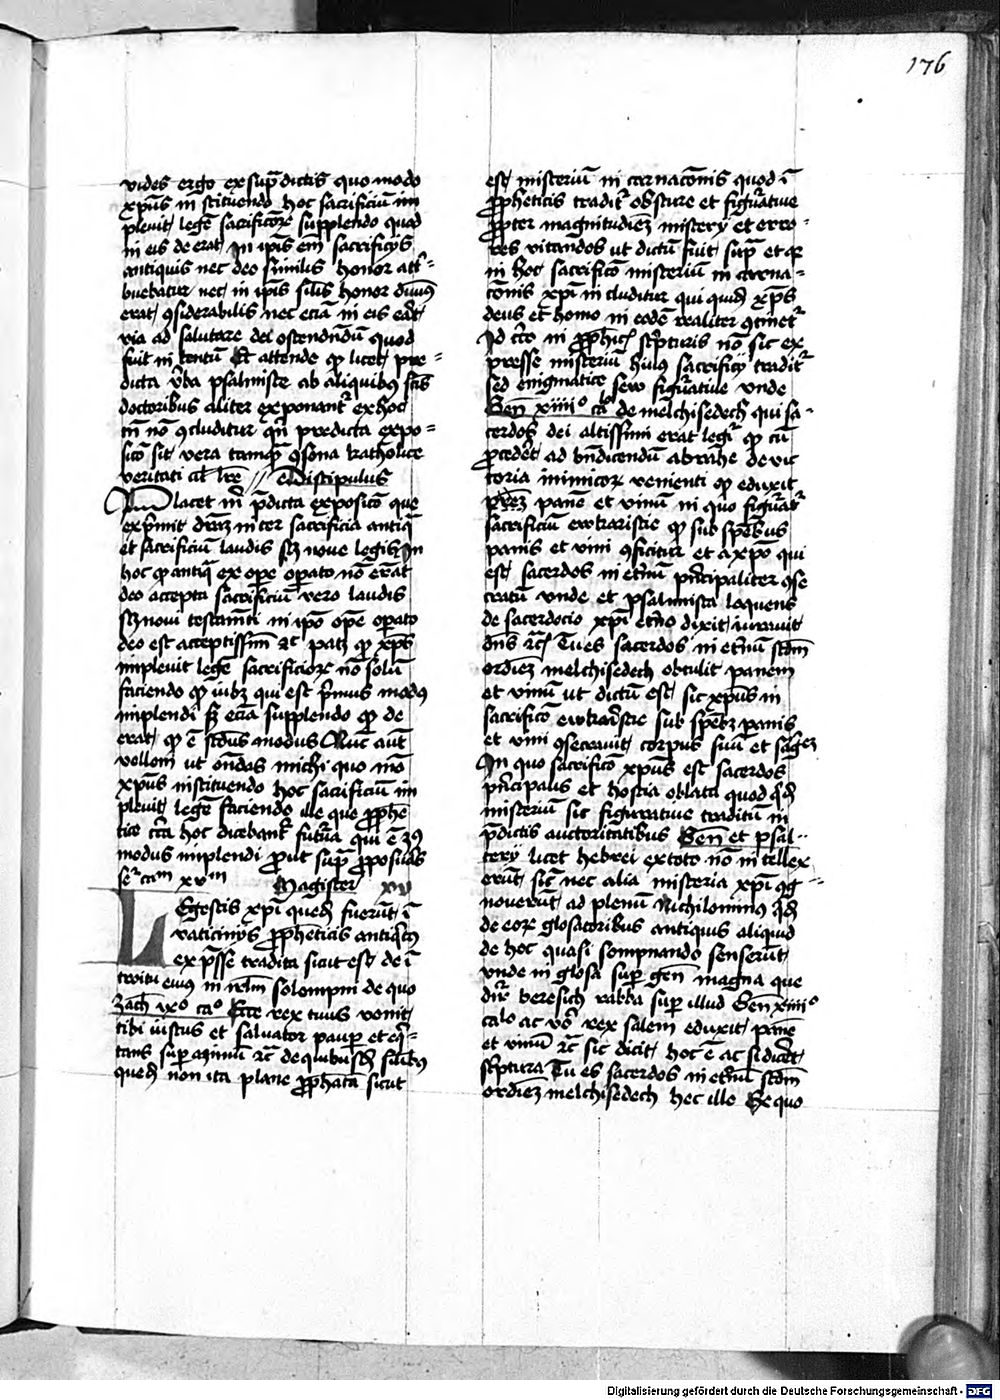 176
vides ergo ex sup̄dictis quo modo
xp̄us in stituendo hoc sacrificiū im
plevit legē sacrificioꝝ supplendo quod
in eis de erat In ip̄is em̄ sacrificijs
antiquis nec deo similis honor att̄ =
buebatur nec in ip̄is filijs honor
erat ꝯsiderabilis nec eciā in eis
via ad salutare dei ostendendū quod
fuit in tentū Et attende qꝫ licet pre =
dicta v̄ba psalmiste ab aliquibus sc̄is
doctoribus aliter exponant̄ ex hoc
tn̄ nō ꝯcluditur qn̄ predicta expo =
sicō sit vera tamqꝫ ꝯsona katholice
veritati // Discipulus
Placet m̄ p̄dicta exposicō que
exp̄mit dr̄am in ter sacrificia antiq̄
et sacrificiū laudis scꝫ noue legis In
hoc qꝫ antiq̄ ex ope opato nō erāt
deo accepta sacrificiū vero laudis
scꝫ noui testamēti in ip̄o opē opato
deo est acceptissim̄ ꝛc patꝫ qꝫ xp̄us
impleuit legē sacrificioꝝ nō solū
faciendo qꝫ iubꝫ qui est p̄mus modus
implendi sꝫ eciā supplendo qꝫ de
erat qꝫ ē scd̄us modus Nūc aut̄
vellem ut on̄das michi quo mō
xp̄us instituendo hoc sacrificiū im
pleuit legē faciendo ille que ꝓphe
tice cir̄ca hoc dicebant̄ futura qui ē 3us
modus implendi ꝓut sup̄ ꝓposuisti
xvm Magister xv
L Egestis xp̄i quedā fuerūt ī
vaticinijs ꝓpheticis antiqꝫ
exp̄sse tradita sicut est de ī
troitu eius in ir̄lm solompni de quo
Zach ixo cao Ecce rex tuus venit
tibi iustus et saluator paup et eq̄ =
tans sup asinū ꝛc de quibusdā
quedā non ita plane ꝓphata sicut
est misteriū in carnacōnis quod ī
ꝓpheticis tradit̄ obscure et figuratiue
ꝓpter magnitudinē misterij et erro =
res vitandos ut dictū fuit sup̄ et qꝫ
in hoc sacrificō misteriū in carna =
cōnis xp̄i in cluditur qui quidē xp̄us
deus et homo in eodē realiter ꝯtinet̄
Id circo in ꝓph̄icis scripturis nō sic ex
presse misteriū huius sacrificij tradit̄
sed enigmatice seu figuratiue unde
Gen̄ xiiiio cao de melchisedech qui sa =
cerdos dei altissimi erat legit̄ qꝫ cū
ꝓcederet ad bn̄dicendū abrahe de vic
toria inimicoꝝ venienti qꝫ eduxit
panē et vinū in quo figurat̄
sacrificiū eukaristie qꝫ sub sp̄ebus
panis et vini ꝯficitur et a xp̄o qui
est sacerdos in et̄nū pn̄cipaliter ꝯse
cratū unde et psalmista loquens
de sacerdocio xp̄i et̄no dixit iurauit
dn̄s ꝛc̄ Tu es sacerdos in et̄nū scd̄m
ordinē melchisedech obtulit panem
et vinū ut dictū est sic xp̄us in
sacrificō eukaristie sub sp̄ebꝫ panis
et vini ꝯsecrauit corpus suū et sāgꝫ
In quo sacrificō xp̄us est sacerdos
pn̄cipalis et hostia oblata quod q̄dē
misteriū sic figuratiue traditū in
p̄dictis auctoritatibus Gen̄ et psal =
terij licet hebrei ex toto nō in tellex
erūt sic̄ nec alia misteria xp̄i ꝯg =
nouerūt ad plenū Nichilominus q̄dē
de eoꝝ glosatoribus antiquis aliquid
de hoc quasi sompniando senserūt
unde in glosa sup gen̄ magna que
dr̄ beresich rabba sup illud Gen̄ xiiiio
calo ac vo rex salem eduxit panē
et vinū ꝛc sic dicit hoc ē ac si dicēt
sc̄ptura Tu es sacerdos in et̄nū scd̄m
ordinē melchisedech hec ille Ex quo
Digitalisierung gefördert durch die Deutsche Forschungsgemeinschaft - DFG